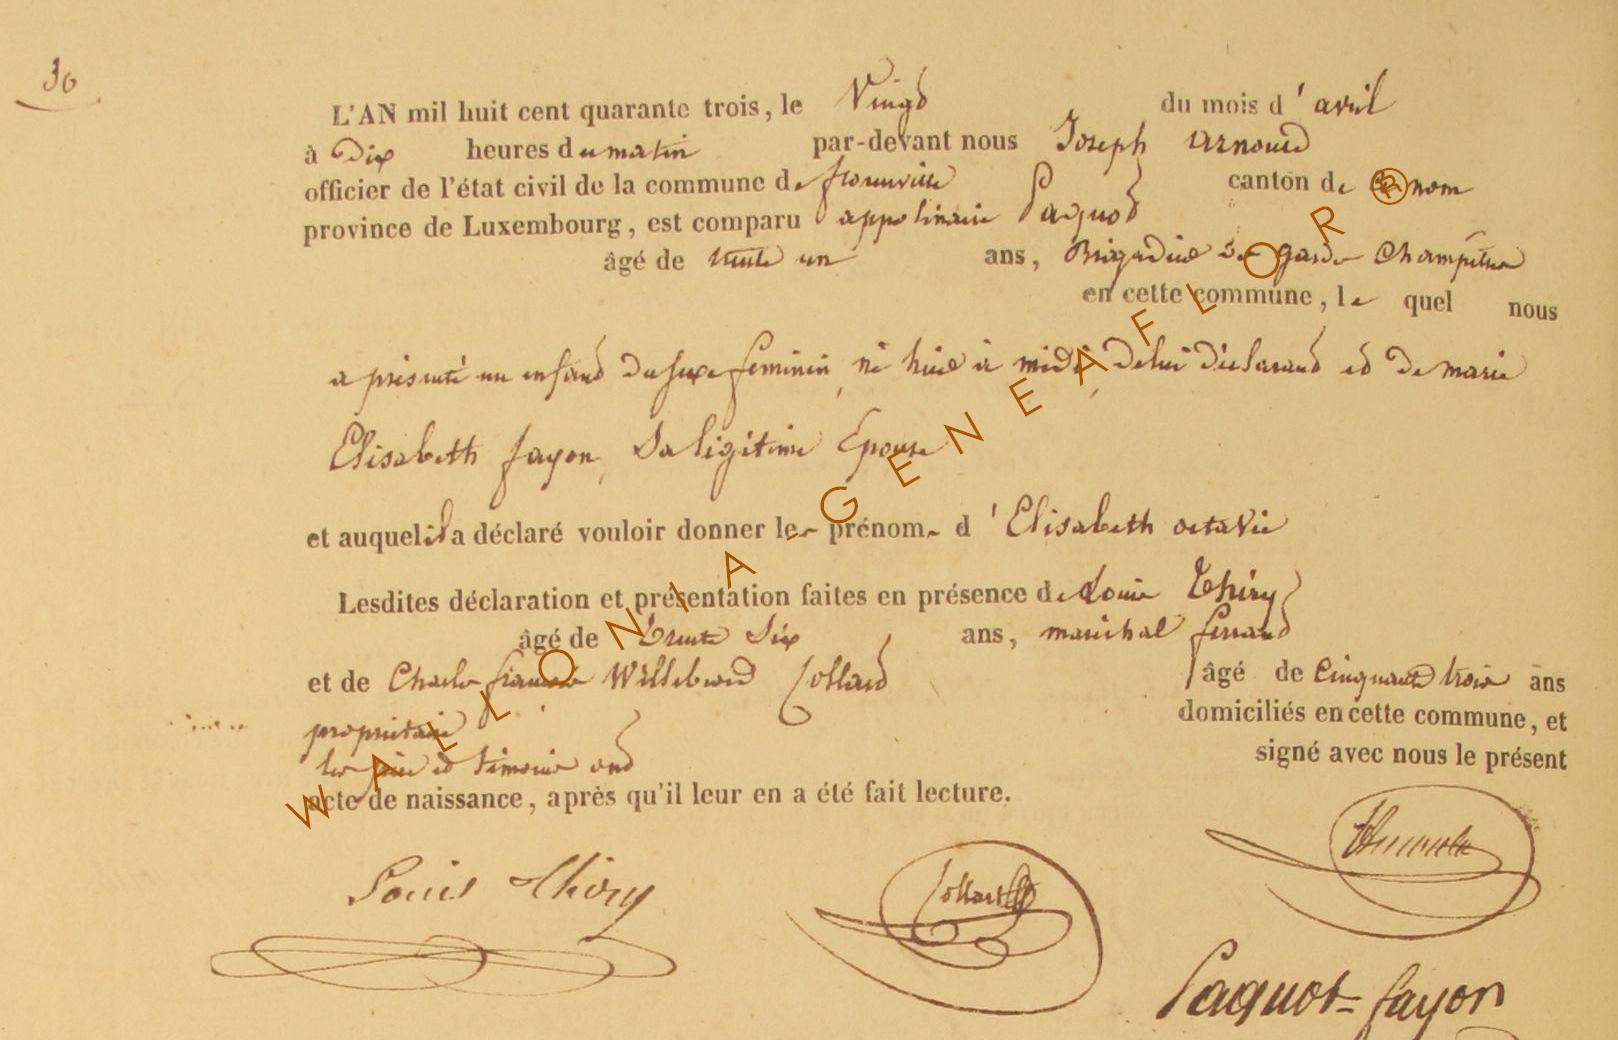 30
L'AN mil huit cent quarante trois, le Vingt du mois d'avril
à Dix heures du matin par-devant nous Joseph arnould
officier de l'état civil de la commune de florenville canton de même nom
province de Luxembourg, est comparu appolinaire Paquot
âgé de trente un ans, Brigadier de garde Champêtre
en cette commune, le quel nous
a présenté un enfant du sexe feminin, né hier à midi, de lui déclarant et de marie
Elisabeth fayon, Sa légitime Epouse
et auquel il a déclaré vouloir donner les prénoms d'Elisabeth octavie
Lesdites déclaration et présentation faites en présence de Louis Thiry
âgé de Trente Six ans, maréchal ferrant
et de Charles françois Willebrord Collard âgé de Cinquante trois ans
propriétaire domiciliés en cette commune, et
les père et témoins ont signé avec nous le présent
acte de naissance, après qu'il leur en a été fait lecture.
Louis Thiry Collard
Paquot-fayon
WALLONIA-GENEAFLOR ®